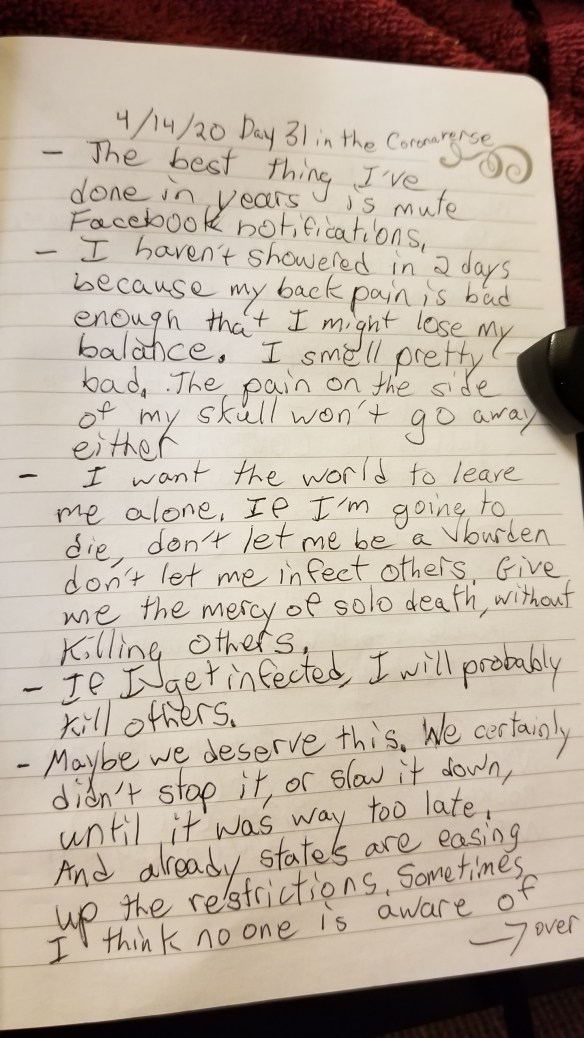 4/14/20 Day 31 in the Coronaverse
- The best thing I've
done in years is mute
Facebook notifications.
- I haven't showered in 2 days
because my back pain is bad
enough that I might lose my
balance. I smell pretty
bad. The pain on the side
of my skull won't go away
either
- I want the world to leave
me alone. If I'm going to
die, don't let me be a burden
don't let me infect others. Give
me the mercy of solo death, without
killing others.
- If I get infected, I will probably
kill others.
- Maybe we deserve this. We certainly
didn't stop it, or slow it down,
until it was way too late.
And already states are easing
up the restrictions. Sometimes
I think no one is aware of
→ over